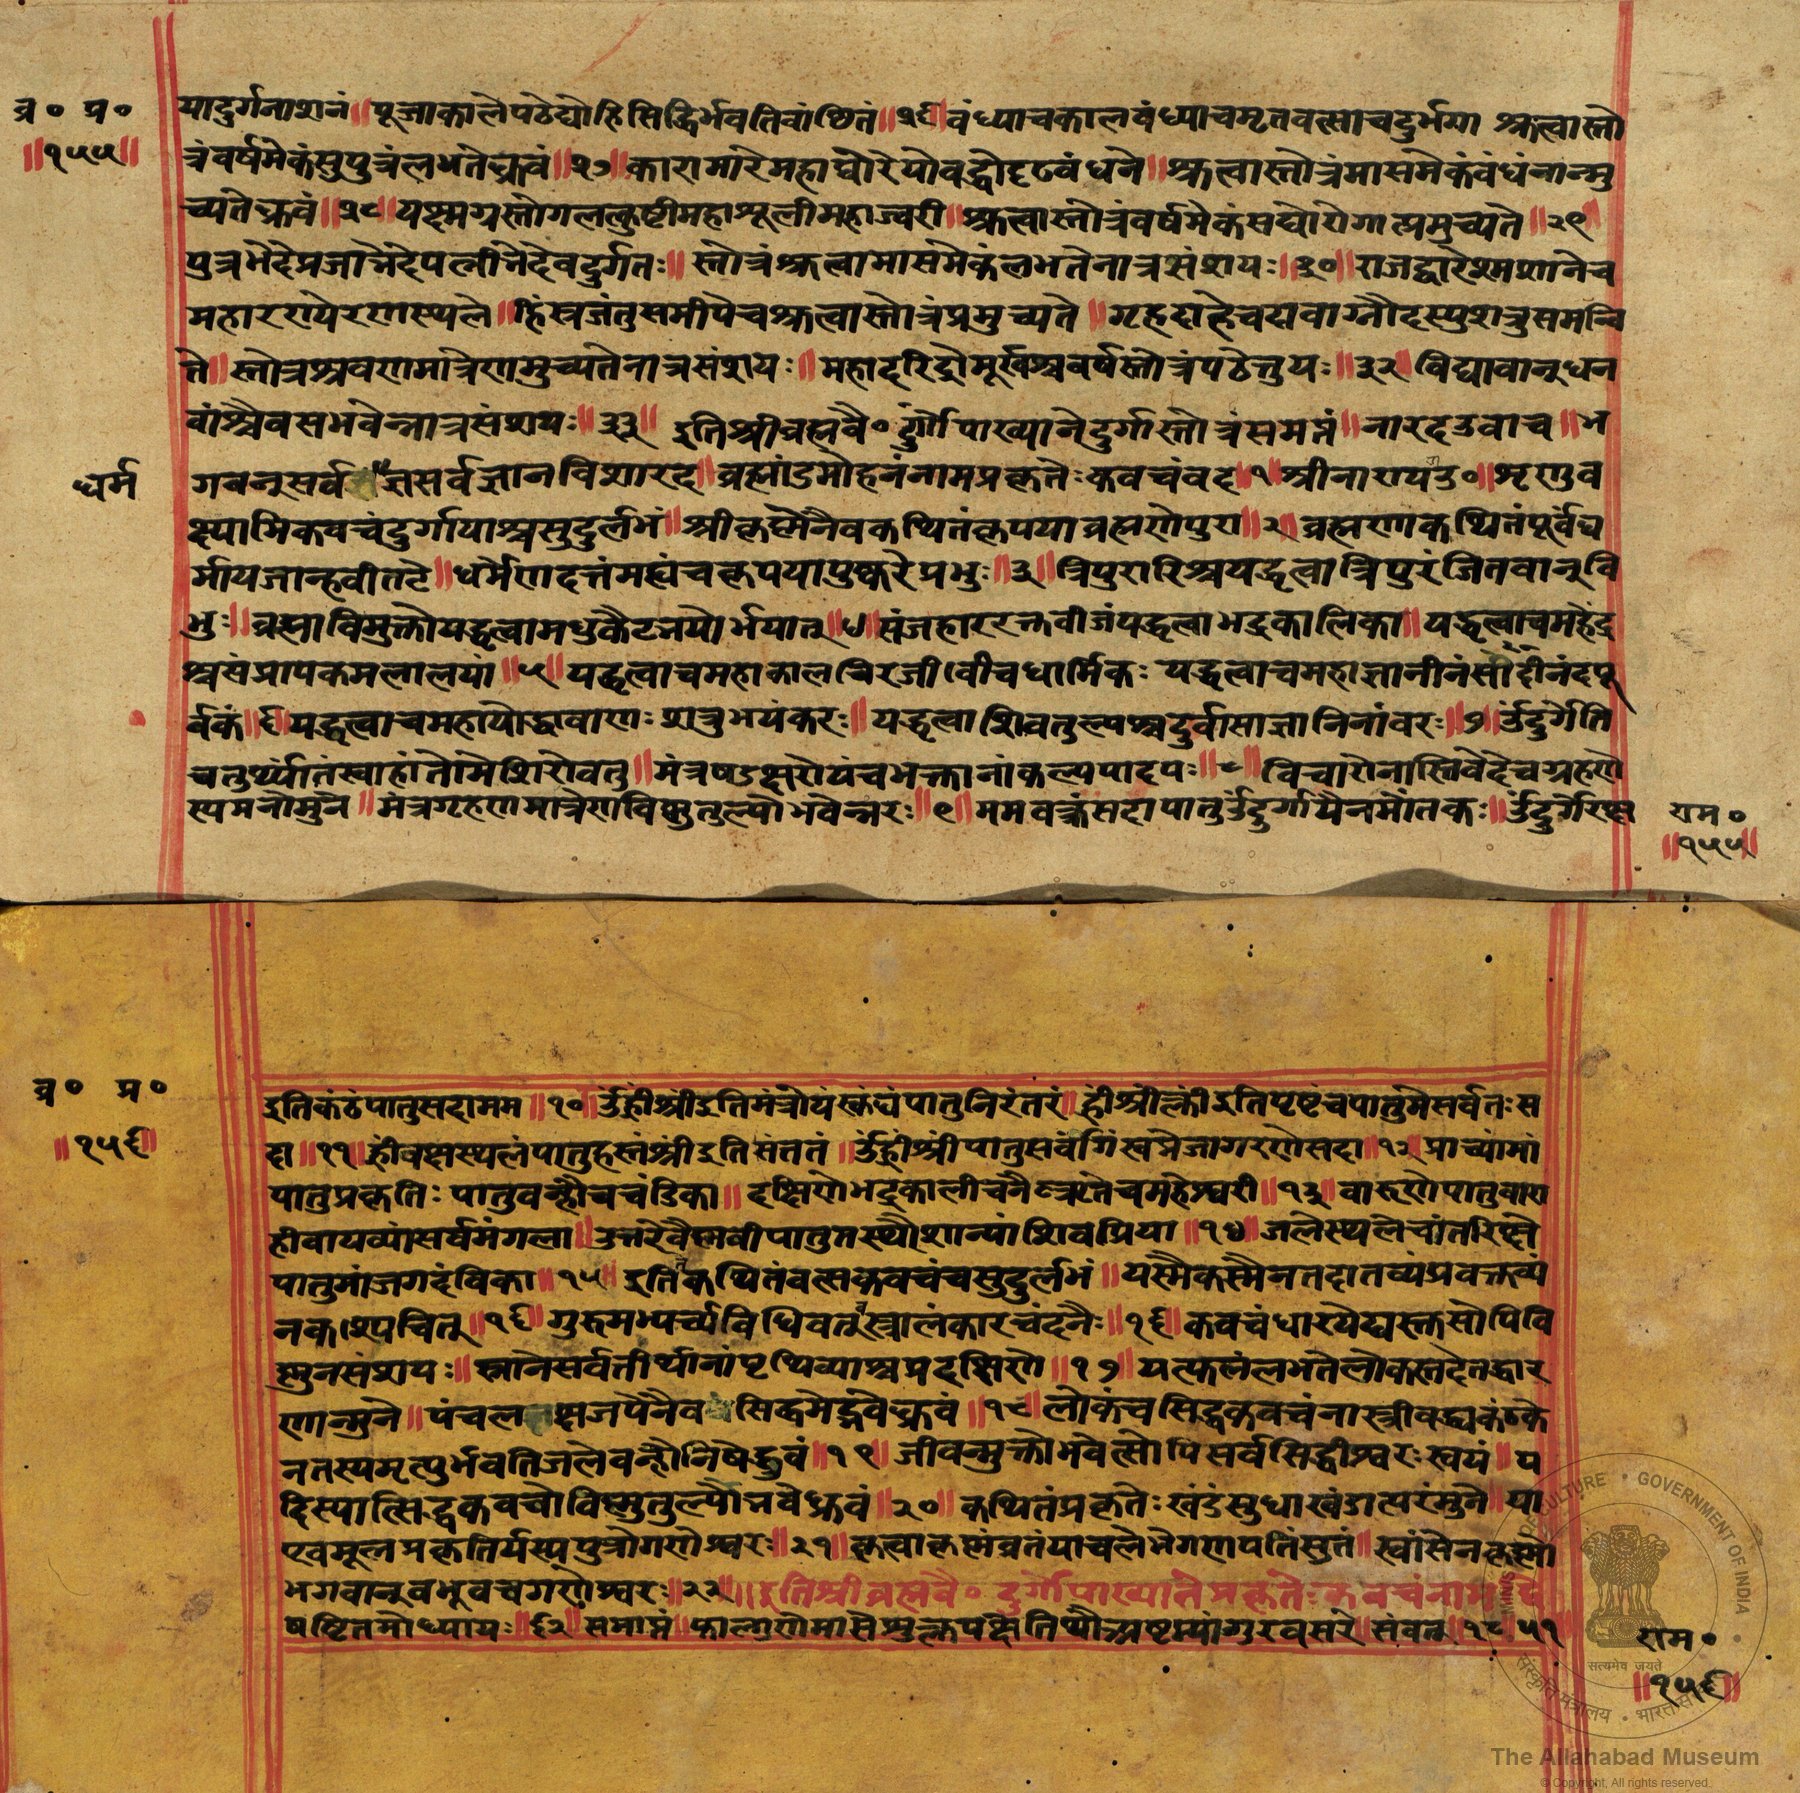 ब्र॰ प्र॰
॥१५५॥
यादुर्गनाशनं॥ पूजाकालेपठेद्योहिसिद्धिर्भवतिवांछितं॥२६॥वंध्याचकालवंध्याचमृतवत्साचदुर्भगा श्रुत्वास्तो
त्रंवर्षमेकंसुपुत्रंलभतेध्रुवं॥२७॥कारागारेमहाघोरेयोवद्धोदृढवंधने॥श्रुत्वास्तोत्रंमासमेकंवंधंनान्मु
च्यतेध्रुवं॥२८॥यक्ष्मग्रस्तोगलत्कुष्टीमहाशूलीमहाज्वरी॥श्रुत्वास्तोत्रंवर्षमेकंसद्योरोगात्प्रमुच्यते॥२९॥
पुत्रभेदेप्रजाभेदेपत्नीभेदेचदुर्गतः॥स्तोत्रंश्रुत्वामासमेकंलभतेनात्रसंशयः॥३०॥राजद्वारेश्मशानेच
महारण्येरणस्थले॥हिंस्रजंतुसमीपेचश्रुत्वास्तोत्रंप्रमुच्यते॥गृहदाहेचदावाग्नौदस्युशत्रुसमन्वि
ते॥स्तोत्रश्रवणमात्रेणमुच्यतेनात्रसंशयः॥महादरिद्रोमूर्खश्चवर्षस्तोत्रंपठेत्तुयः॥३२॥विद्यावान्धन
वांश्चैवसभवेन्नात्रसंशयः॥३३॥ इतिश्रीव्रह्मवै॰दुर्गोपाख्यानेदुर्गास्तोत्रंसमप्तं॥नारदउवाच॥भ
धर्म
गवन्सर्वज्ञसर्वज्ञानविशारद॥व्रह्मांडमोहनंनामप्रकृतेःकवचंवद॥१॥श्रीनारायणउ॰॥शृणुव
क्ष्यामिकवचंदुर्गायाश्चसुदुर्लभं॥श्रीकृष्णेनैवकथितंकृपयाव्रह्मणेपुरा॥२॥व्रह्मणाकथितंपूर्वंध
र्मायजान्हवीतटे॥धर्मेणदत्तंमह्यंचकृपयापुष्करेप्रभुः॥३॥त्रिपुरारिश्चयद्धृत्वात्रिपुरंजितवान्वि
भुः॥व्रह्माविमुक्तोयद्धृत्वामधुकैटभयोर्भयात्॥४॥संजहाररक्तवीजंयद्धृत्वाभद्रकालिका॥यद्धृत्वाचमहेंद्र
श्चसंप्रापकमलालयां॥५॥यद्धृत्वाचमहाकालचिरजीवीचधार्मिकः यद्धृत्वाचमहाज्ञानीनंदीनंदपू
र्वकं॥६॥यद्धृत्वाचमहायोद्धावाणःशत्रुभयंकरः॥यद्धृत्वाशिवतुल्यश्चदुर्वासाज्ञानिनांवरः॥७॥ॐदुर्गेति
चतुर्थ्यांतंस्वाहांतोमेशिरोवतु॥मंत्रषडक्षरोयंचभक्तानांकल्पपादपः॥८॥विचारोनास्तिवेदेचग्रहणे
स्यमनोमुने॥मंत्रगृहणमात्रेणविष्णुतुल्योभवेन्नरः॥९॥ममवक्त्रंसदापातुॐदुर्गायैनमोंतकः॥ॐदुर्गेरक्ष
राम॰
॥१५५॥
ब्र॰ प्र॰
॥१५६॥
इतिकंठंपातुसदामम॥१०॥ॐह्रींश्रींइतिमंत्रोयंस्कंधंपातुनिरंतरं॥ह्रींश्रींक्लींइतिपृष्टंचपातुमेसर्वतःस
दा॥११॥ह्रींवक्षस्थलंपातुहस्तंश्रींइतिसंततं॥ॐह्रींश्रींपातुसर्वांगंस्वप्नेजागरणेसदा॥१२॥प्राच्यांमां
पातुप्रकृतिः पातुवन्हौचचंडिका॥दक्षिणेभद्रकालीचनैऋतेचमहेश्वरी॥१३॥वारुणेपातुवारा
हीवायव्यांसर्वमंगला॥उत्तरेवैष्णवीपातुतस्थैशान्यांशिवप्रिया॥१४॥जलेस्थलेचांतरिक्षे
पातुमांजगदंविका॥१५॥इतिकथितंवत्सकवचंचसुदुर्लभं॥यस्मैकस्मैनतदातव्यंप्रवक्तव्यं
नकश्यचित्॥१६॥गुरुमभ्यर्च्यविधिवत्स्त्रालंकारचंदनैः॥१६॥कवचंधारयेद्यस्तसोपिवि
ष्णुनसंशयः॥स्नानेसर्वतीर्थानांपृथिव्याश्चप्रदक्षिणे॥१७॥यत्फलंलभतेलोकस्तदेतद्धार
णान्मुने॥पंचलक्षजपेनैवसिद्धमेद्भवेध्रुवं॥१८॥लोकंचसिद्धकवचंनास्त्रीवद्यकंठके
नतस्यमृत्युर्भवतिजलेवन्हौनिषेद्ध्रुवं॥१९॥जीवन्मुक्तोभवेत्सोपिसर्वसिद्धीश्वरःस्वयं॥य
दिस्यात्सिद्धकवचोविष्णुतुल्योभवेध्रुवं॥२०॥कथितंप्रकृतेःखंडंसुधाखंडात्परंमुने॥या
एवमूलप्रकृतिर्यस्यपुत्रोगणेश्वरः॥२१॥कृत्वाकृष्णंव्रतंयाचलेभेगणपतिंसुतं॥स्वांसेनकृष्णो
भगवान्वभूवचगणेश्वरः॥२२॥इतिश्रीव्रह्मवै॰ दुर्गोपाख्यानेप्रकृतेःकवचंनाम
षष्टितमोध्यायः॥६२॥समाप्तं॥फाल्गुणेमासेशुक्लपक्षेतिथौअष्टम्यांगुरवसरे॥संवत्१८५१
राम॰
॥१५६॥
MINISTRY OF CULTURE • GOVERNMENT OF INDIA
सत्यमेव जयते
संस्कृति मंत्रालय • भारत सरकार
The Allahabad Museum
© Copyright, All rights reserved.